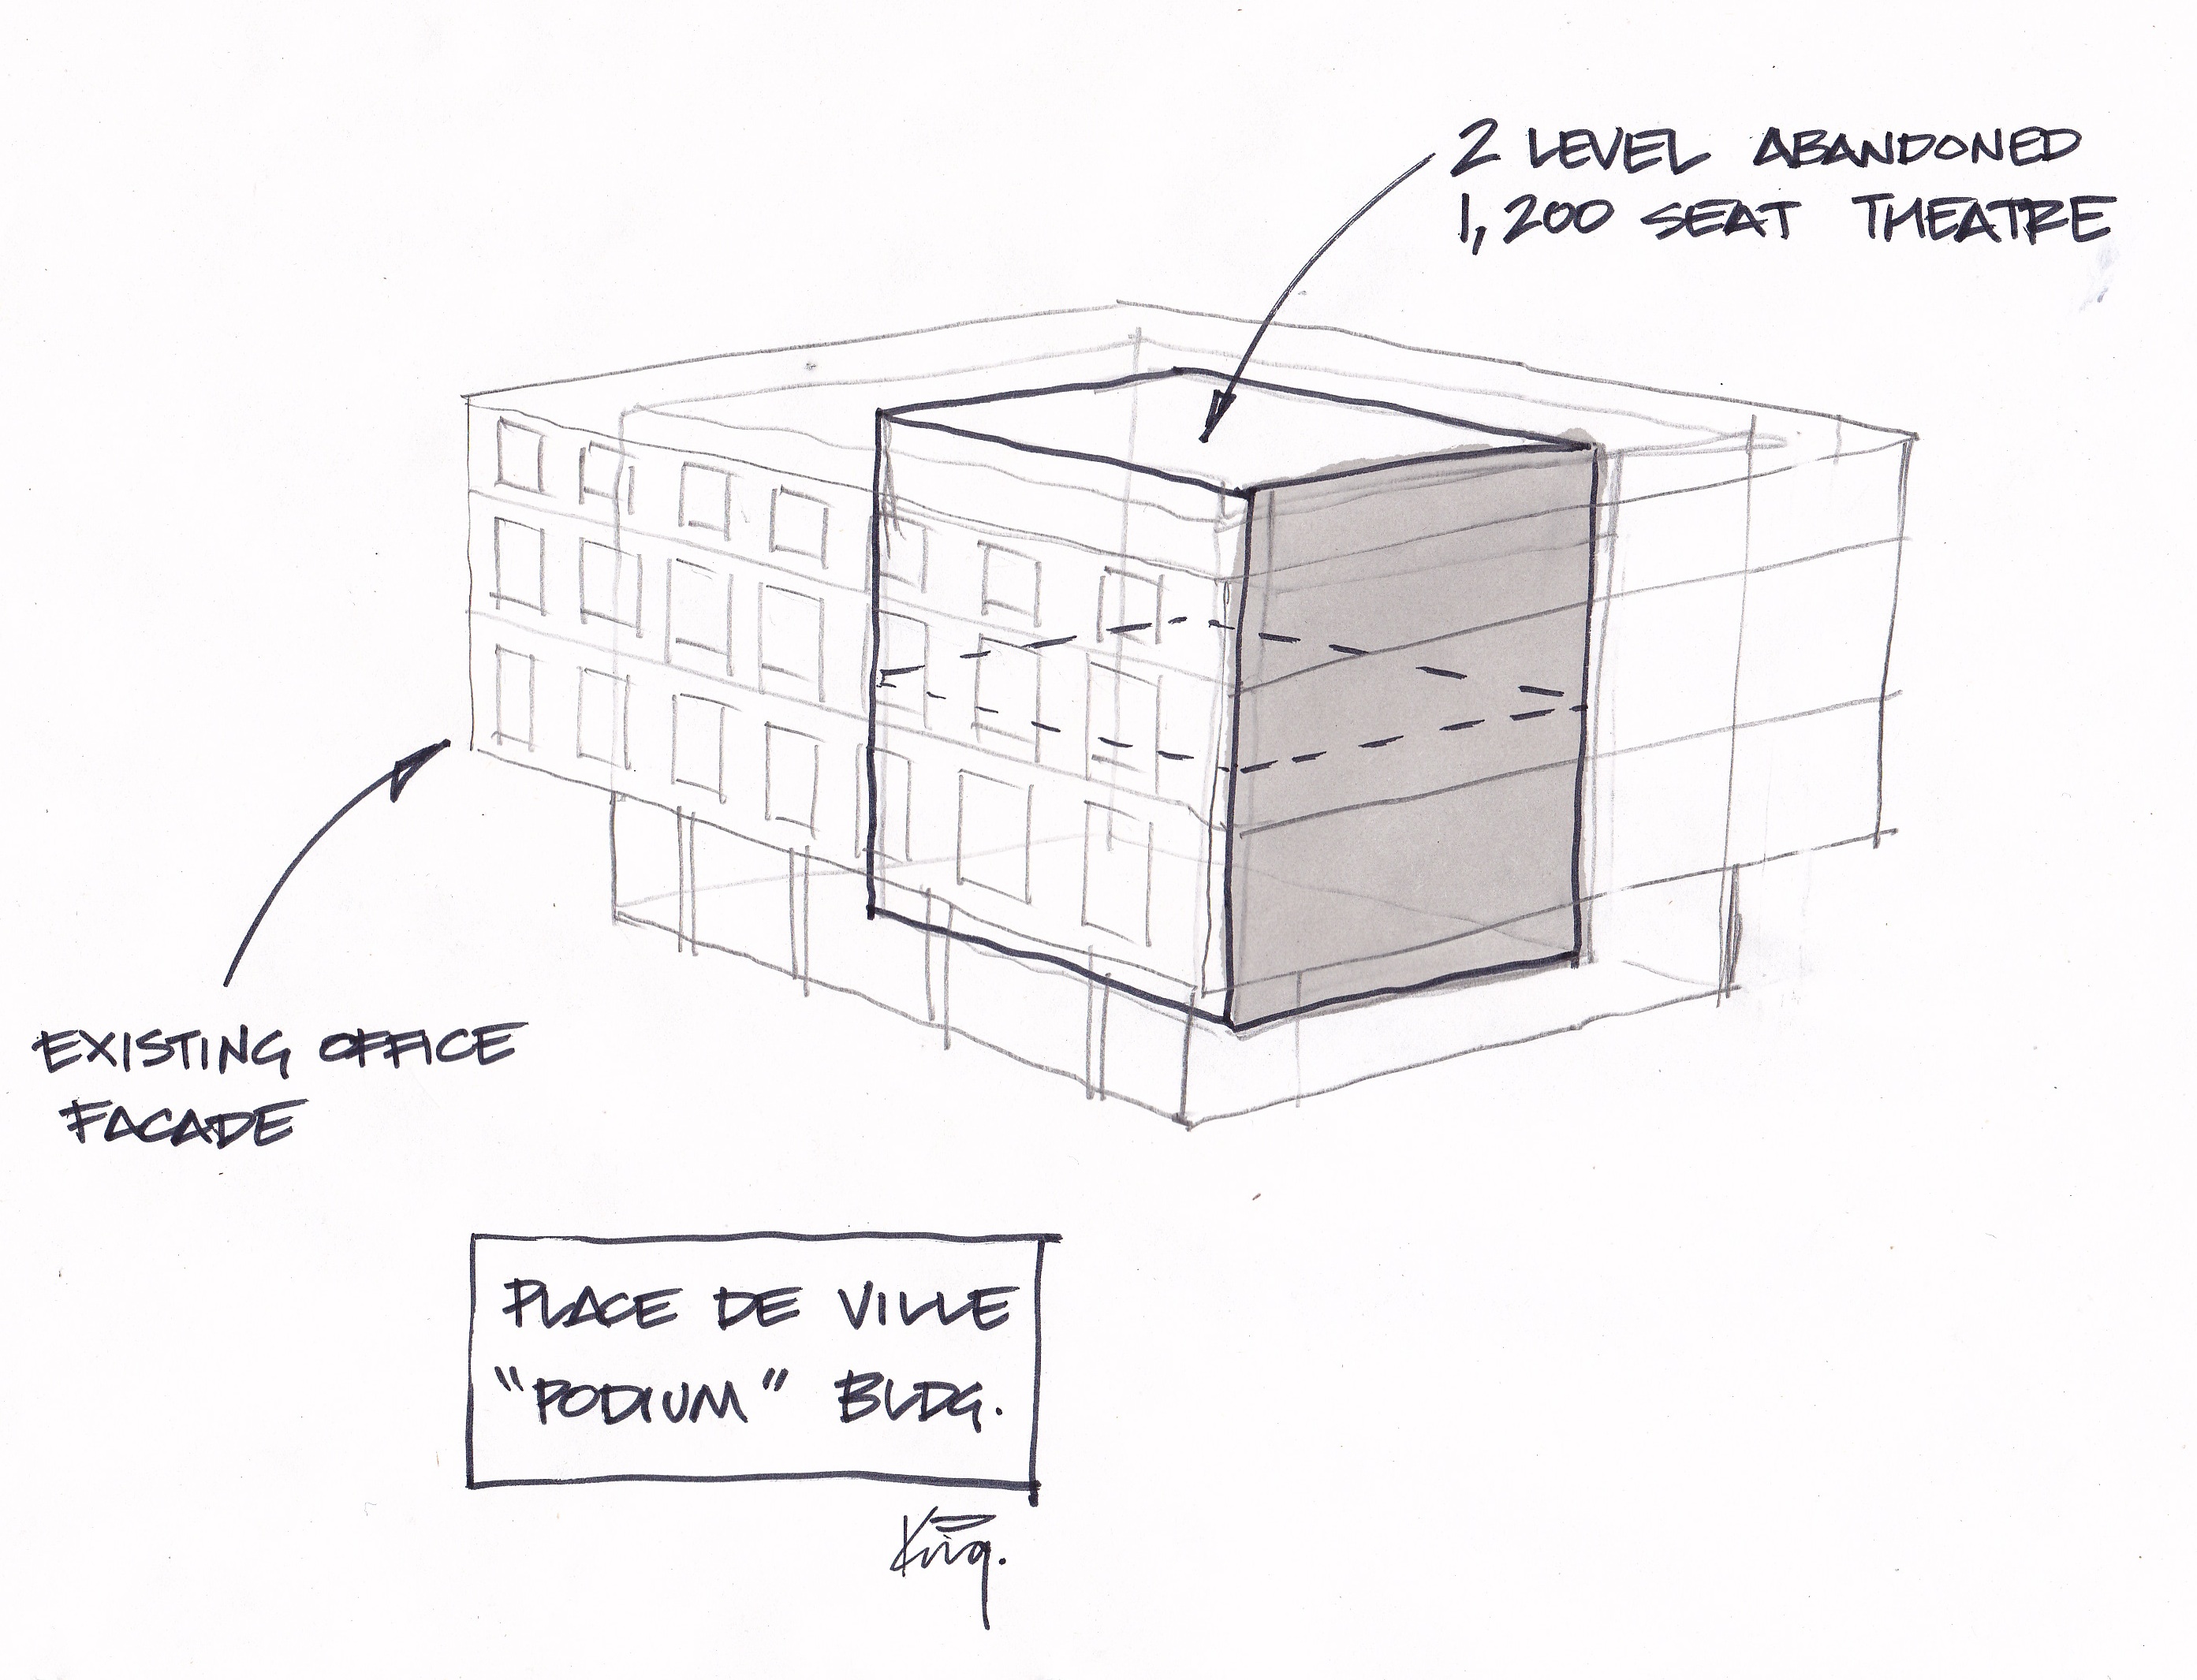 2 LEVEL ABANDONED
1,200 SEAT THEATRE
EXISTING OFFICE
FACADE
PLACE DE VILLE
"PODIUM" BLDG.
King.